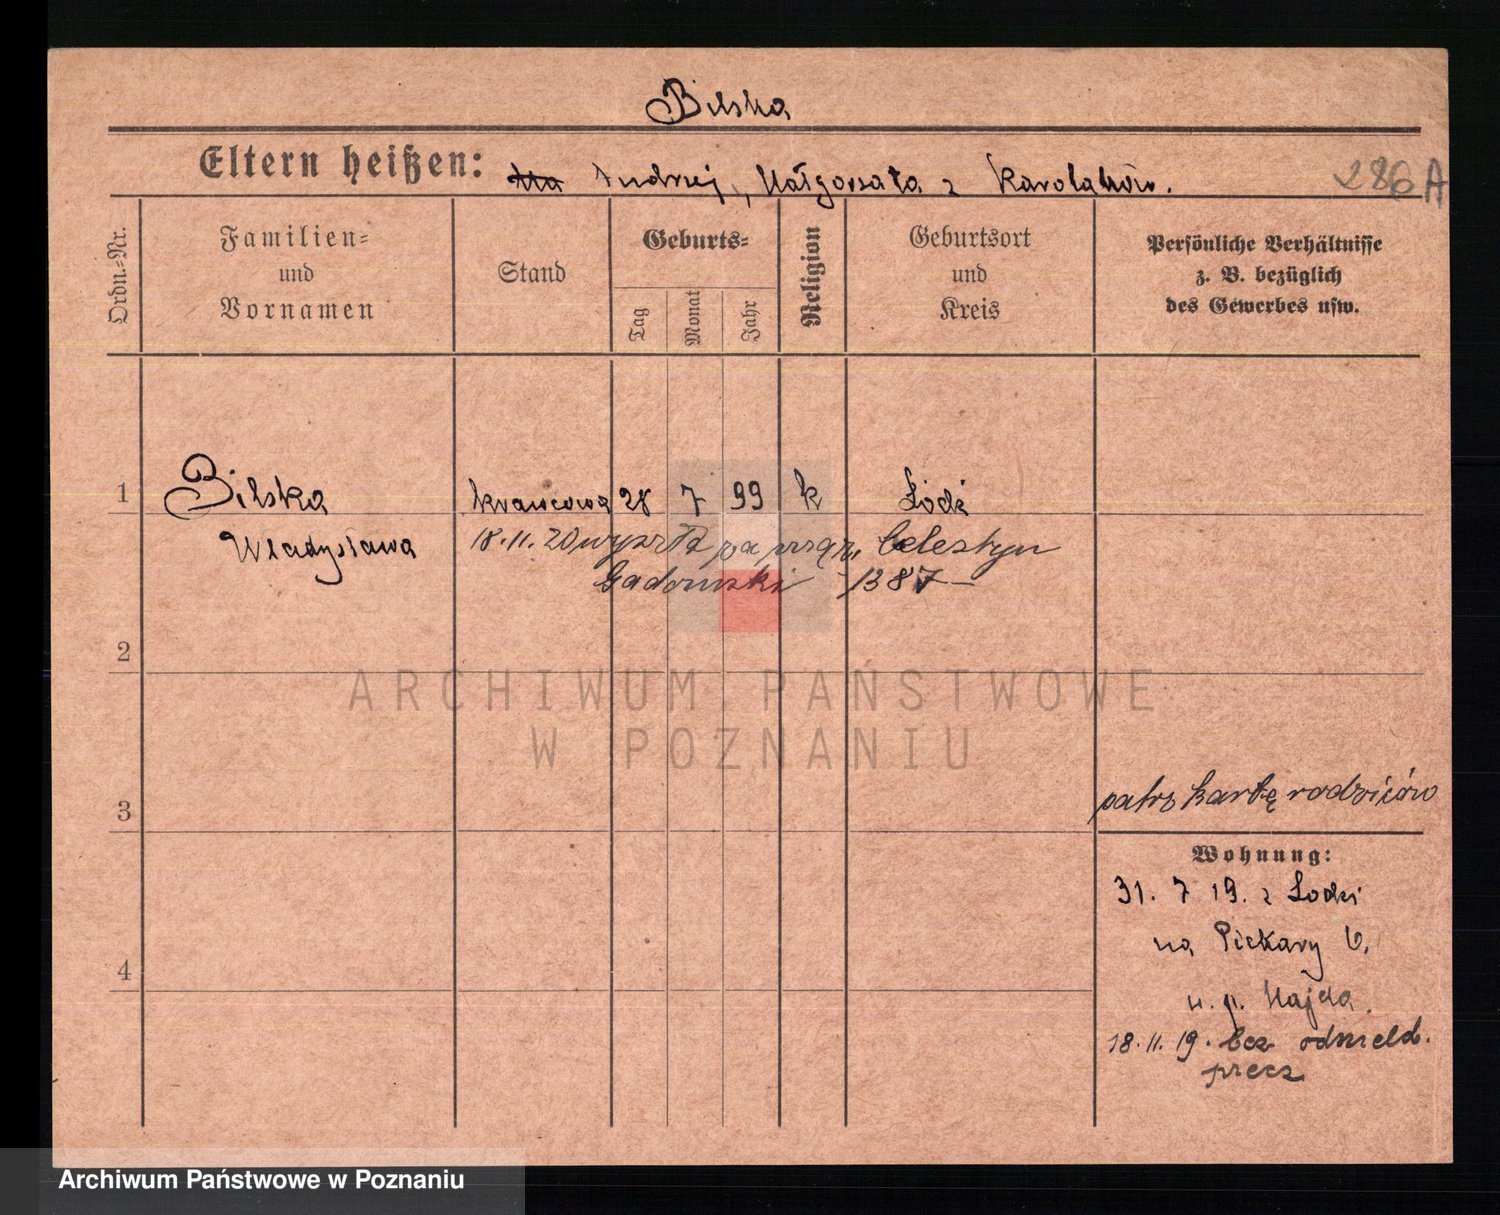 Bilska
Eltern heißen: Andrzej, Małgorzata z Karolaków.
286 A
Ordn.-Nr.
Familien-
und
Vornamen
Stand
Geburts-
Tag
Monat
Jahr
Religion
Geburtsort
und
Kreis
Persönliche Verhältnisse
z. B. bezüglich
des Gewerbes usw.
1 Bilska krawcowa 28 7 99 k Łódź
Władysława
18.11.20 wyszła za mąż, Celestyn
Gadomski 1387
2
ARCHIWUM PAŃSTWOWE
W POZNANIU
patrz kartę rodziców
3
Wohnung:
31. 7 19. z Łodzi
na Piekary 6.
u. p. Majda.
4
18.11.19. bez odmeld.
precz
Archiwum Państwowe w Poznaniu